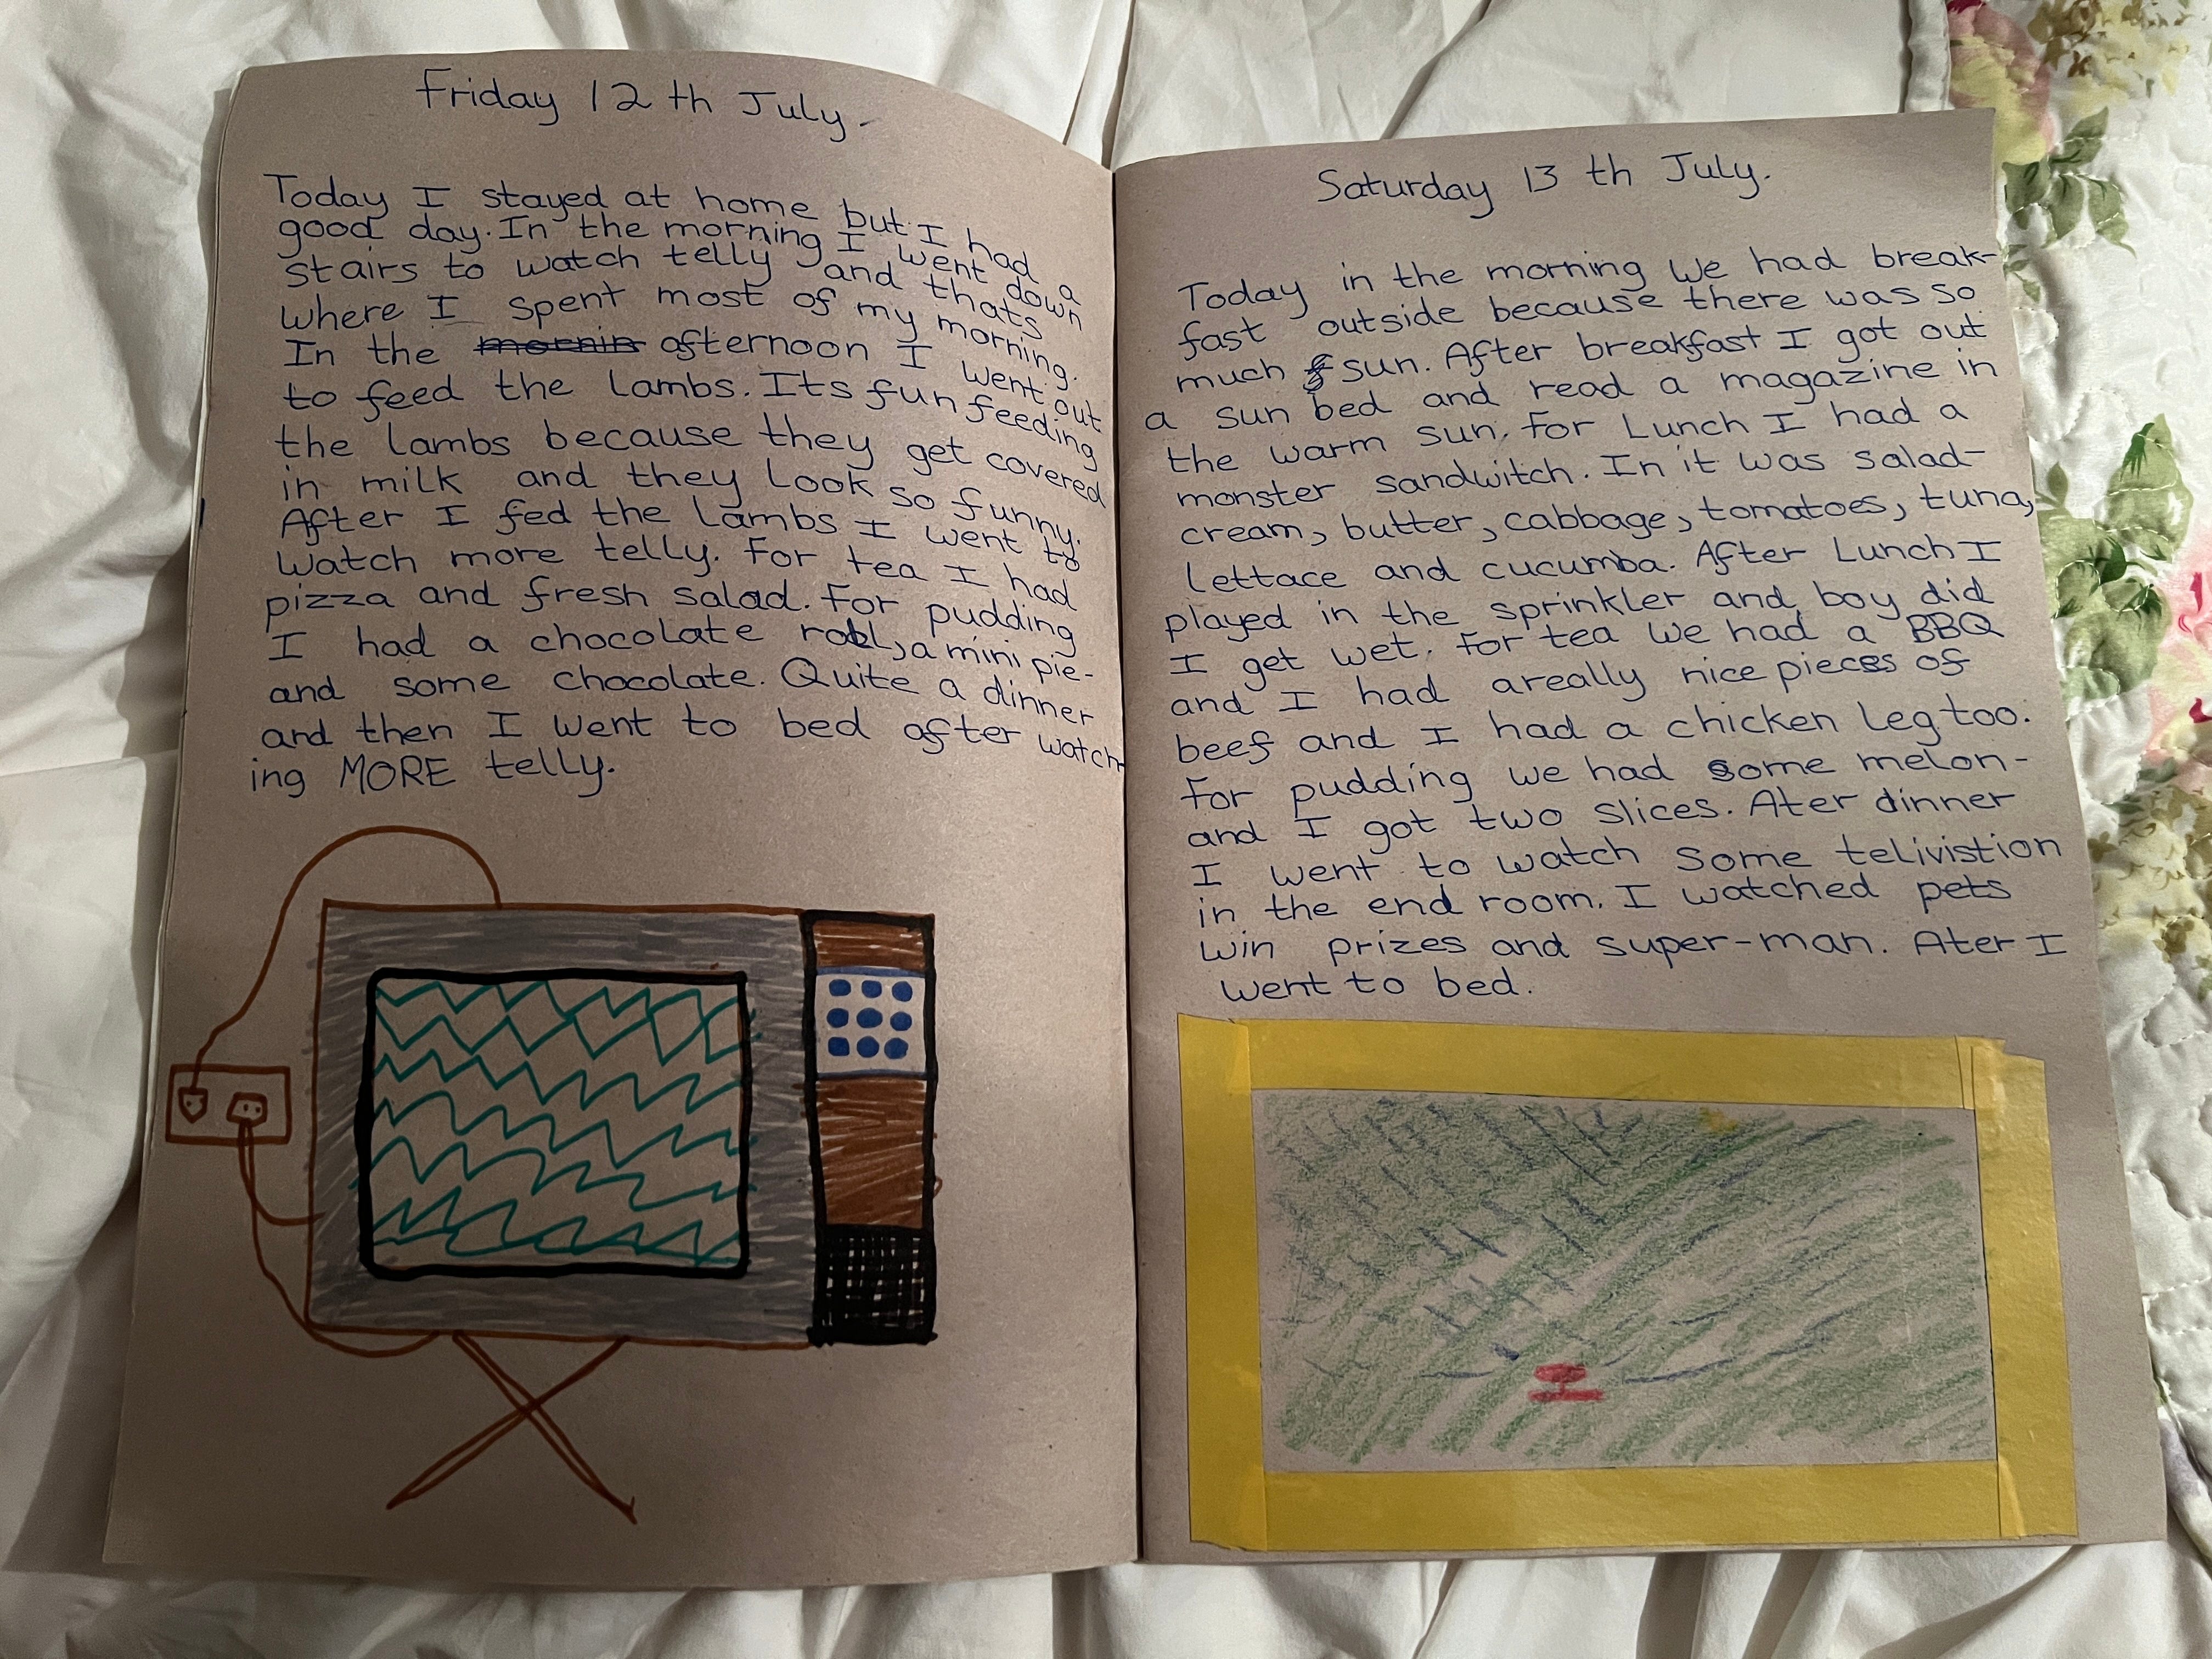 Friday 12 th July.
Today I stayed at home but I had a
good day. In the morning I went down
stairs to watch telly and thats
where I spent most of my morning.
In the mornin afternoon I went out
to feed the lambs. Its fun feeding
the lambs because they get covered
in milk and they look so funny.
After I fed the lambs I went to
watch more telly. For tea I had
pizza and fresh salad. For pudding
I had a chocolate roll, a mini pie-
and some chocolate. Quite a dinner
and then I went to bed after watch-
ing MORE telly.
Saturday 13 th July.
Today in the morning we had break-
fast outside because there was so
much sun. After breakfast I got out
a sun bed and read a magazine in
the warm sun. For Lunch I had a
monster sandwitch. In it was salad-
cream, butter, cabbage, tomatoes, tuna,
lettace and cucumba. After Lunch I
played in the sprinkler and, boy did
I get wet. For tea we had a BBQ
and I had areally nice pieces of
beef and I had a chicken leg too.
For pudding we had some melon-
and I got two slices. Ater dinner
I went to watch some telivistion
in the end room. I watched pets
win prizes and super-man. Ater I
went to bed.